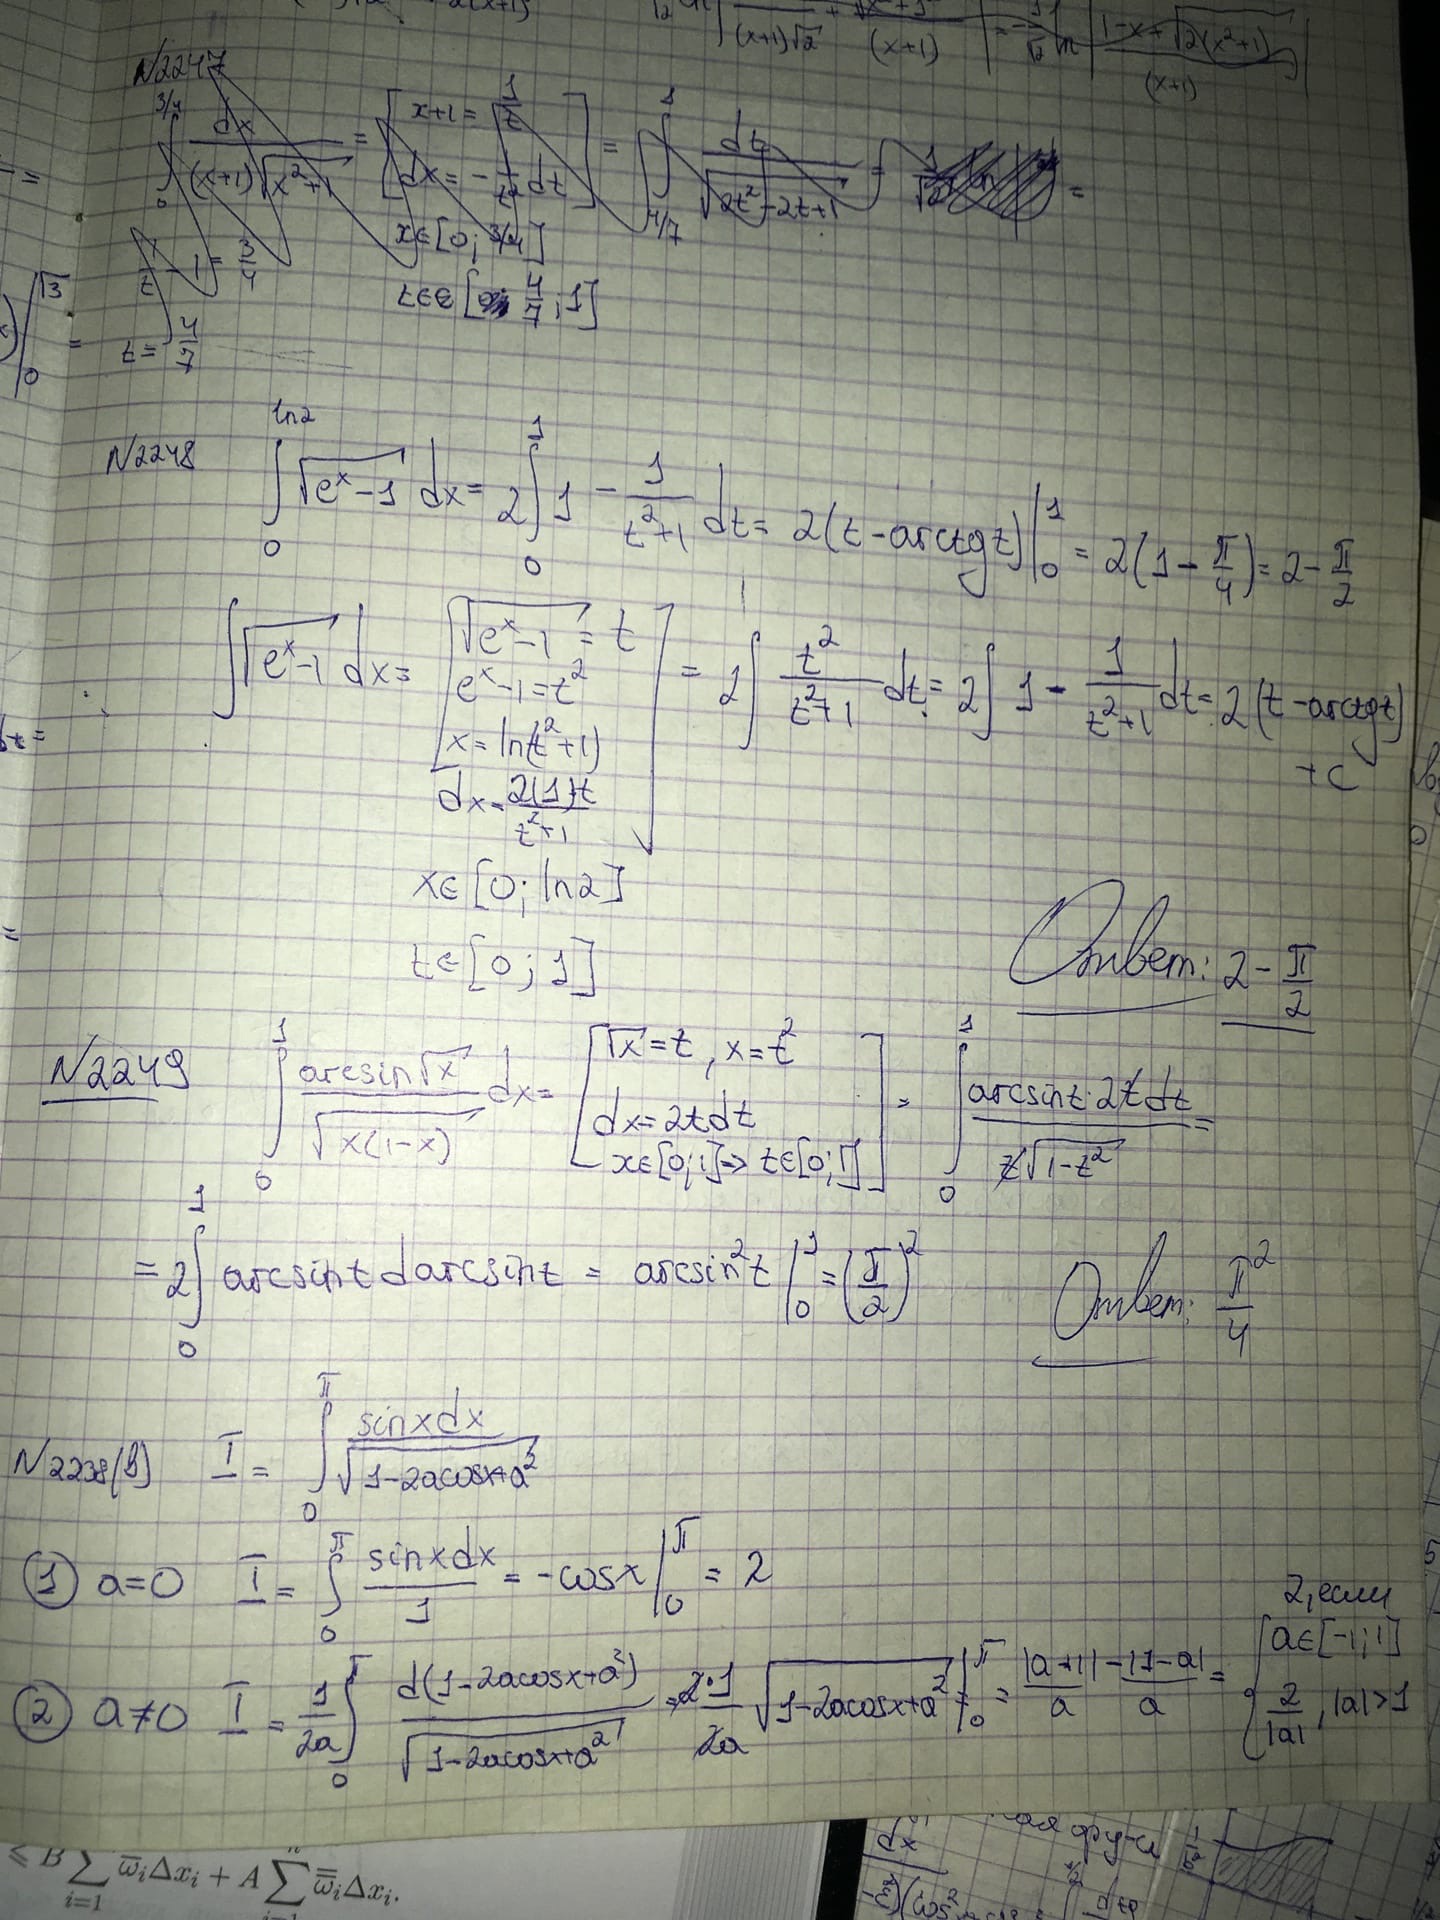 (x+1)√2 + (x+1) = -1/√2 ln |1-x+√(2(x²+1)) / (x+1)|
N2247
∫₀^(3/4) dx/((x+1)√(x²+1)) = [x+1 = 1/t
dx = -1/t² dt] = ∫_(4/7)^1 dt/√(2t²-2t+1) = 1/√2 ln =
x∈[0; 3/4]
1/t - 1 = 3/4
t∈[4/7; 1]
t = 4/7
|₀^√3 =
N2248 ∫₀^(ln2) √(eˣ-1) dx = 2∫₀^1 1 - 1/(t²+1) dt = 2(t-arctgt)|₀^1 = 2(1-π/4) = 2-π/2
∫√(eˣ-1) dx = [√(eˣ-1) = t
eˣ-1 = t²
x = ln(t²+1)
dx = 2(1)t/(t²+1)] = 2∫ t²/(t²+1) dt = 2∫ 1 - 1/(t²+1) dt = 2(t-arctgt)
+C
x∈[0; ln2]
t∈[0; 1]
Ответ: 2-π/2
N2249 ∫₀^1 arcsin√x/√(x(1-x)) dx = [√x = t, x = t²
dx = 2tdt
x∈[0;1] => t∈[0;1]] = ∫₀^1 arcsint·2tdt/(t√(1-t²)) =
= 2∫₀^1 arcsint darcsint = arcsin²t|₀^1 = (π/2)²
Ответ: π²/4
N2238(в) I = ∫₀^π sinxdx/√(1-2acosx+a²)
① a=0 I = ∫₀^π sinxdx/1 = -cosx|₀^π = 2
② a≠0 I = 1/2a ∫₀^π d(1-2acosx+a²)/√(1-2acosx+a²) = 2·1/2a √(1-2acosx+a²)|₀^π = |a+1|/a - |1-a|/a = { 2, если a∈[-1;1]
2/|a|, |a|>1
⩽ B∑_(i=1) ω̅ᵢΔxᵢ + A∑_(i=1)^n ω̿ᵢΔxᵢ.
dx